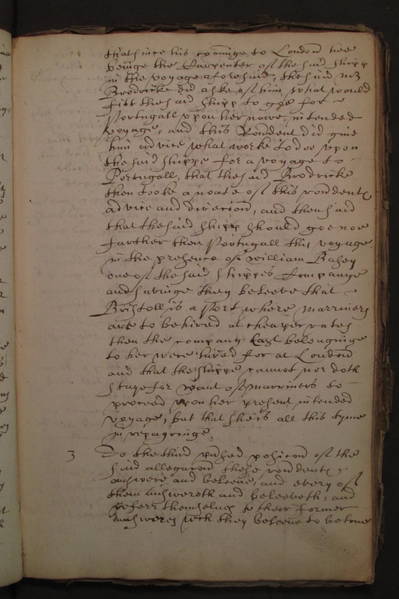 that since his comminge to London hee
beinge the Carpenter of the said shipp
in the voyage aforesaid, the said Mr
Brodericke did aske of him what would
fitt the said shipp to goe for
Portugall upon her nowe intended
voyage, and this Rondent did give
him advice what worke to doe upon
the said shippe for a voyage to
Portugall, that the said Brodricke
then tooke a noate of this rondents
advice and direction, and then said
that the said shipp should goe noe
further then Portugall this voyage
in the presence of William
one of the said shipps Companie
and further they beleeve that
Bristoll is a Port where marriners
are to be hired at cheaper rates
then the company last belonginge
to her were hired for at London
and that the shippe cannot nor doth
stay for want of marriners to
proceed upon her present intended
voyage, but that she is all this tyme
in repayringe.
3 To the third position of the
said allegacon these rondents
answere and beleeve, and every of
them answereth and beleeveth, and
referr themselves to their former
answeres wch they beleeve to be true